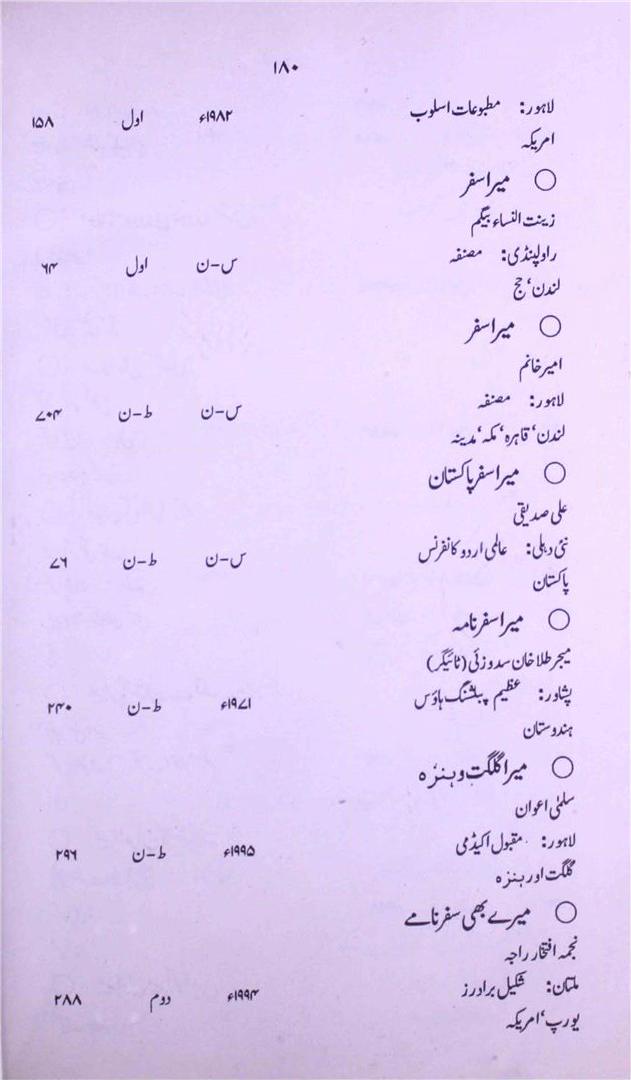 ۱۸۰
لاہور: مطبوعات اسلوب ۱۹۸۲ء اول ۱۵۸
امریکہ
○ میرا سفر
زینت النساء بیگم
راولپنڈی: مصنفہ س-ن اول ۶۴
لندن، حج
○ میرا سفر
امیر خانم
لاہور: مصنفہ س-ن ط-ن ۷۰۴
لندن، قاہرہ، مکہ، مدینہ
○ میرا سفر پاکستان
علی صدیقی
نئی دہلی: عالمی اردو کانفرنس س-ن ط-ن ۷۶
پاکستان
○ میرا سفر نامہ
میجر طلا خان سدوزئی (ٹائیگر)
پشاور: عظیم پبلشنگ ہاؤس ۱۹۷۱ء ط-ن ۲۴۰
ہندوستان
○ میرا گلگت و ہنزہ
سلمیٰ اعوان
لاہور: مقبول اکیڈمی ۱۹۹۵ء ط-ن ۲۹۶
گلگت اور ہنزہ
○ میرے بھی سفر نامے
نجمہ افتخار راجہ
ملتان: شکیل برادرز ۱۹۹۴ء دوم ۲۸۸
یورپ، امریکہ